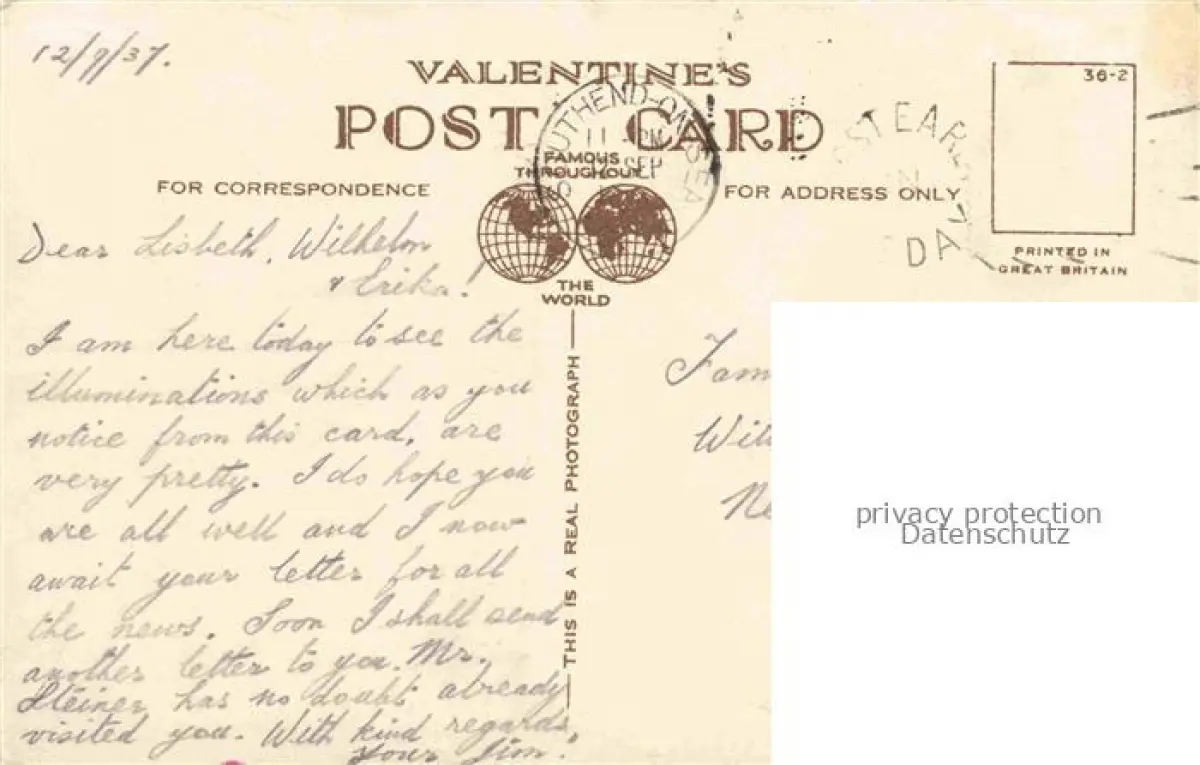 12/9/37.
VALENTINE'S
POST CARD
FAMOUS
THROUGHOUT
THE
WORLD
FOR CORRESPONDENCE
FOR ADDRESS ONLY
SOUTHEND-ON-SEA
11 - PM
12 SEP
36-2
PRINTED IN
GREAT BRITAIN
DAY
THIS IS A REAL PHOTOGRAPH
Dear Lisbeth, Wilhelm
& Erika!
I am here today to see the
illuminations which as you
notice from this card, are
very pretty. I do hope you
are all well and I now
await your letter for all
the news. Soon I shall send
another letter to you. Mr.
Steiner has no doubt already
visited you. With kind regards,
Your Jim.
Fam
privacy protection
Datenschutz